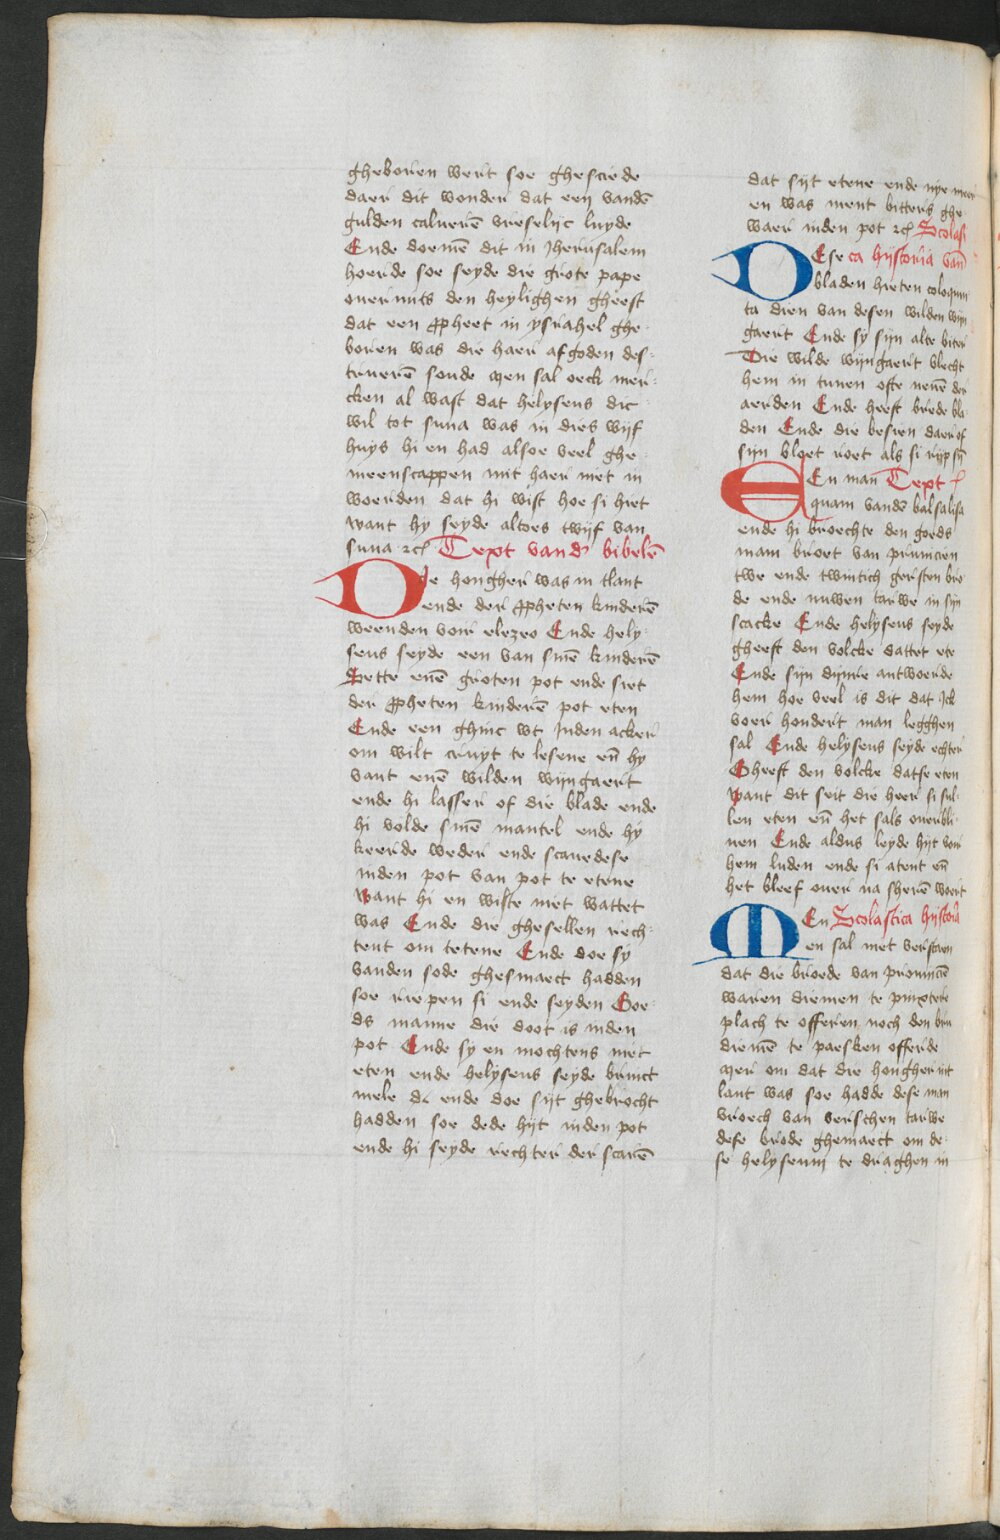 gheboren wert soe ghesciede
daer dit wonder dat een vandē
gulden calueren vreselijc luyde
Ende doemē dit in Jherusalem
hoerde soe seyde die grote pape
ouermits den heylighen gheest
dat een ꝓpheet in ysrahel ghe-
boren was die haer afgoden des-
truerē soude men sal oeck mer-
cken al wast dat helyseus dic
wil tot suna was in dies wijf
huys hi en had alsoe veel ghe-
meenscappen mit haer niet in
woerden dat hi wist hoe si hiet
want hy seyde altoes twijf van
suna ⁊c̄ Text vand' bibelē
Die hongher was in tlant
ende der ꝓpheten kinderē
weenden voir elezeo Ende hely-
seus seyde een van sinē kinderē
Sette enē groten pot ende siet
der ꝓpheten kinderē pot eten
Ende een ghinc wt Inden acker
om wilt cruyt te lesene en̄ hy
vant enē wilden wijngaert
ende hi lasser of die blade ende
hi volde sinē mantel ende hy
keerde weder ende scauedese
inden pot van pot te etene
want hi en wiste niet wattet
was Ende die ghesellen rech-
tent om tetene Ende doe sy
vanden sode ghesmaect hadden
soe riepen si ende seyden Goe-
ds manne die doot is inden
pot Ende sy en mochtens niet
eten ende helyseus seyde brinct
mele dr ende doe sijt ghebrocht
hadden soe dede hijt inden pot
ende hi seyde rechter der scarē
dat sijt etene ende nye meer
en was ment bitters ghe-
waer inden pot ⁊c̄ Scolasti
DEse ca hijstoria van
bladen hieten coloquin
ta dien van desen wilden wijn
gaert Ende sy sijn alte bitter
Die wilde wijngaert vlecht
hem in tunen ofte neuē der
aerden Ende heeft brede bla-
den Ende die besien daer of
sijn bloet roet als si rijp sijn
EEn man Text
quam vandē balsalisa
ende hi broechte den goeds
mam broet van primicien
twe ende twintich gersten bro
de ende nuwen tarwe in sijn
scacke Ende helyseus seyde
gheeft den volcke dattet ete
Ende sijn dijnre antwoerde
hem hoe veel is dit dat Ick
voer hondert man legghen
sal Ende helyseus seyde echter
Gheeft den volcke datse eten
want dit seit die heer si sul-
len eten en̄ het sals ouerbli-
uen Ende aldus leyde hijt voir
hem luden ende si atent en̄
het bleef ouer na sherē woert
MEn Scolastica hijstoria
en sal niet verstaen
dat die broede van primiciē
waren diemen te pinxtere
plach te offeren noch den bru
diemē te paesken offerde
mer om dat die hongher int
lant was soe hadde dese man
vroech van verschen tarwe
dese brode ghemaect om de-
se helyseum te draghen in